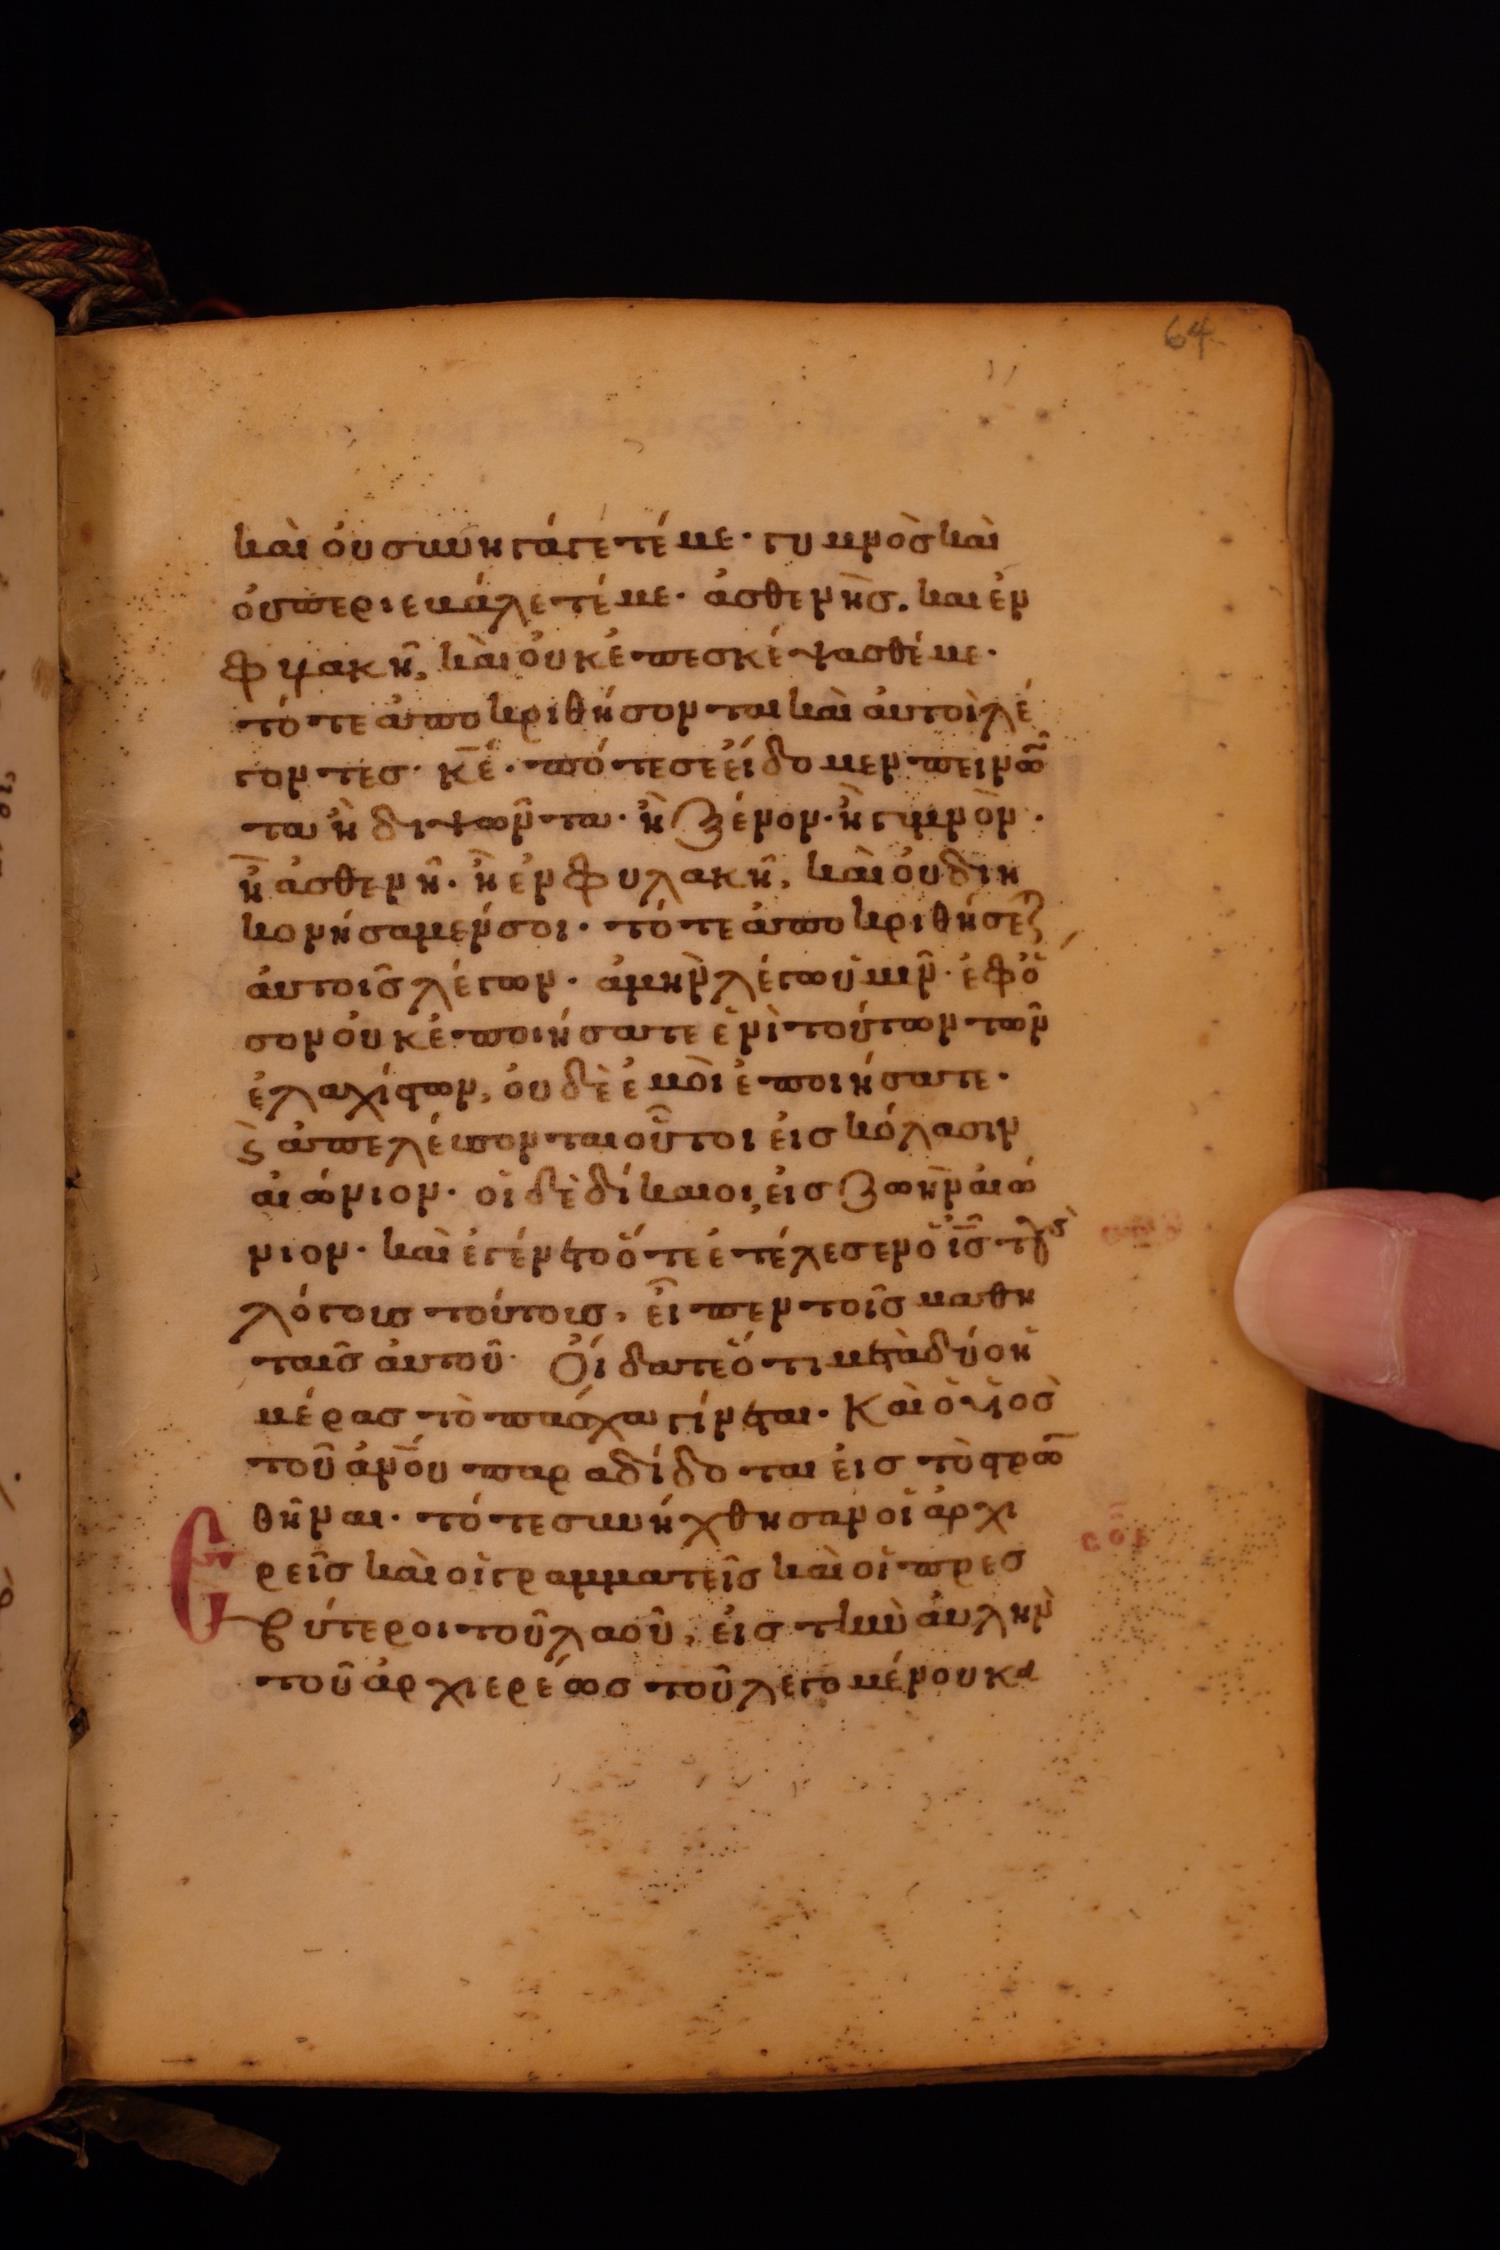 64
καὶ οὐ συνηγάγετέ με· γυμνὸς καὶ
οὐ περιεβάλετέ με· ἀσθενὴς. καὶ ἐν
φυλακῆ, καὶ οὐκ ἐπεσκέψασθέ με·
τότε ἀποκριθήσονται καὶ αὐτοὶ λέ
γοντες· κ̅ε̅· πότε σε εἴδομεν πεινῶ
τα ἢ διψῶντα· ἢ ξένον· ἢ γυμνὸν·
ἢ ἀσθενῆ· ἢ ἐν φυλακῆ, καὶ οὐ διη
κονήσαμέν σοι· τότε ἀποκριθήσετ
αὐτοῖς λέγων· ἀμὴν λέγω ὑμῖν· ἐφ ὅ
σον οὐκ ἐποιήσατε ἑνὶ τούτων τῶν
ἐλαχίστων, οὐδὲ ἐμοὶ ἐποιήσατε·
ϗ ἀπελέυσονται οὗτοι εἰς κόλασιν
αἰώνιον· οἱ δὲ δίκαιοι, εἰς ζωὴν αἰώ
νιον· καὶ ἐγένετο ὅτε ἐτέλεσεν ὁ ι̅ς̅ τοὺς
λόγους τούτους, εἶπεν τοῖς μαθη
ταῖς αὐτοῦ· Οἴδατε ὅτι μετὰ δύο ἡ
μέρας τὸ πάσχα γίνεται· Καὶ ὁ υἱὸς
τοῦ ἀν̅ο̅υ παραδίδοται εἰς τὸ στρω
θῆναι· τότε συνήχθησαν οἱ ἀρχι
ρεῖς καὶ οἱ γραμματεῖς καὶ οἱ πρεσ
βύτεροι τοῦ λαοῦ, εἰς τὴν αὐλὴν
τοῦ ἀρχιερέως τοῦ λεγομένου κα